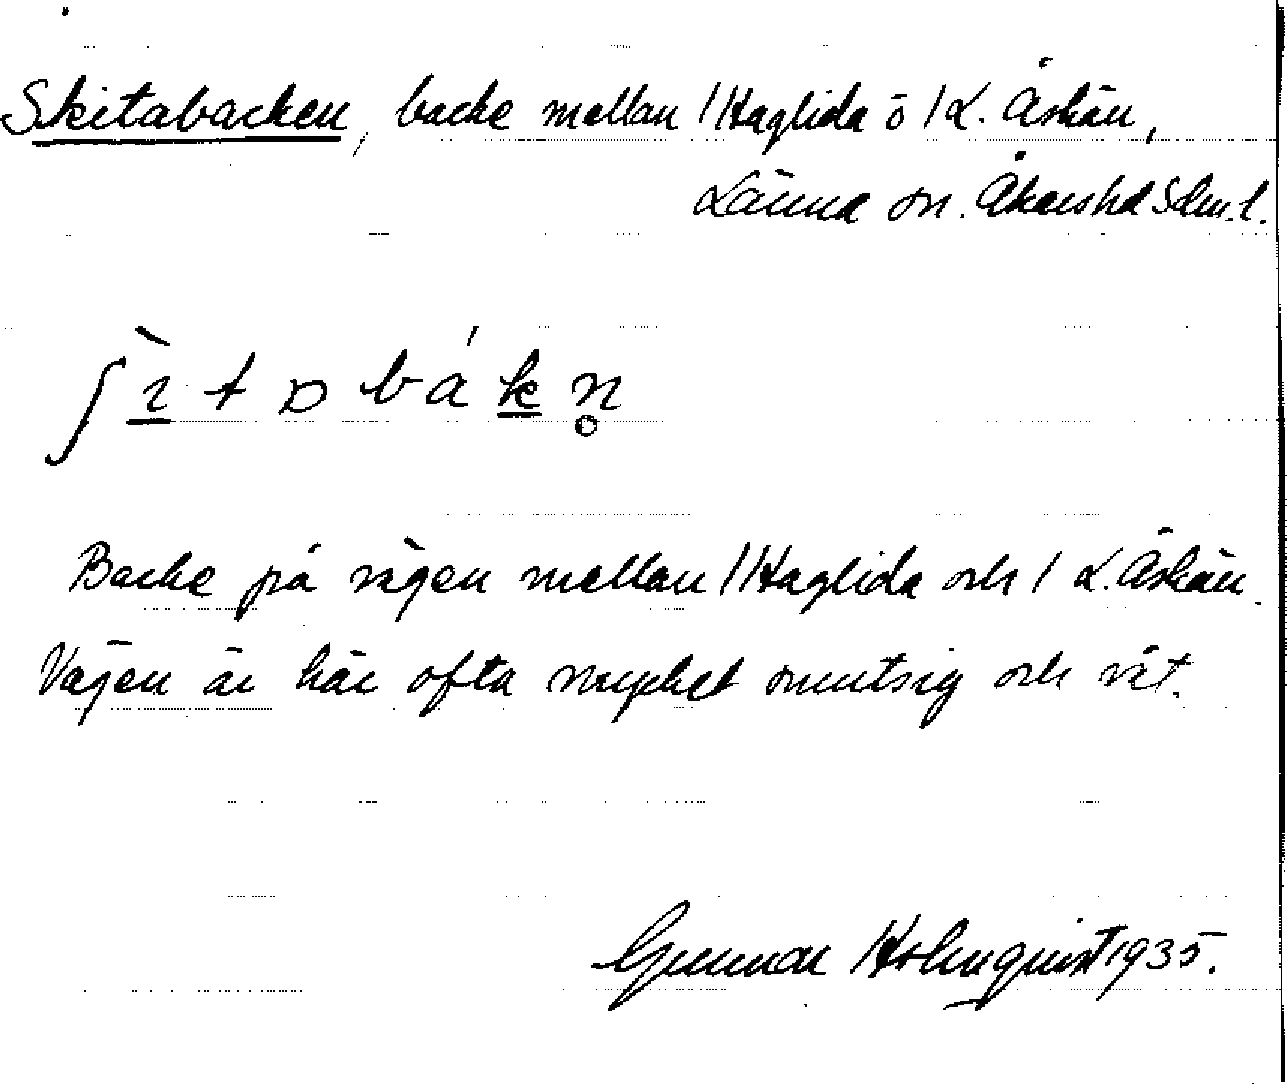 Skitabacken, backe mellan /Haglida o /L. Åskän,
Länna sn. Åkers hd Sdm. l.
ʃ ì t a b á k n̥
Backe på vägen mellan /Haglida och / L. Åskän.
Vägen är här ofta mycket smutsig och våt.
Gunnar Holmquist 1935.